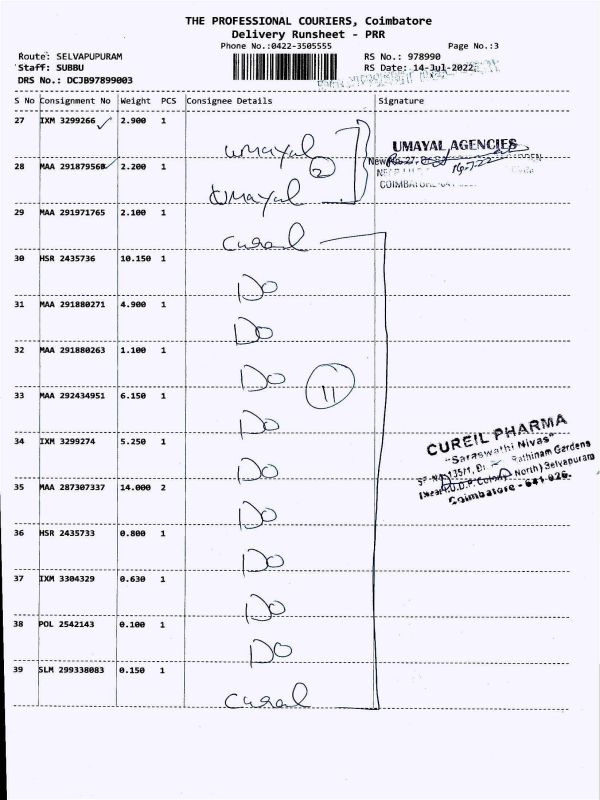 THE PROFESSIONAL COURIERS, Coimbatore
Delivery Runsheet - PRR
Phone No.:0422-3505555 Page No.:3
Route: SELVAPUPURAM RS No.: 978990
Staff: SUBBU RS Date: 14-Jul-2022
DRS No.: DCJB97899003
S No Consignment No Weight PCS Consignee Details Signature
27 IXM 3299266 2.900 1
umayal
UMAYAL AGENCIES
28 MAA 291879560 2.200 1
2
14.7.22
COIMBATORE
Umayal
29 MAA 291971765 2.100 1
Cureil
30 HSR 2435736 10.150 1
Do
31 MAA 291880271 4.900 1
Do
32 MAA 291880263 1.100 1
Do 11
33 MAA 292434951 6.150 1
Do
34 IXM 3299274 5.250 1
CUREIL PHARMA
"Saraswathi Nivas"
Rathinam Gardens
North) Selvapuram
Coimbatore - 641 026.
Do
35 MAA 287307337 14.000 2
Do
36 HSR 2435733 0.800 1
Do
37 IXM 3304329 0.630 1
Do
38 POL 2542143 0.100 1
Do
39 SLM 299338083 0.150 1
Cureil